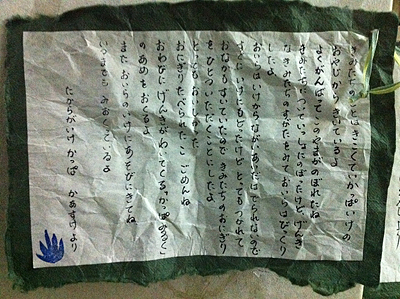 きみたちのことは かっぱいけの
おやじから きいているよ
よくがんばってこのやまがのぼれたね
きみたちについていったのだったけど、げんき
なきみたちのすがたをみておいらはびっくり
したよ
おいらはいけからながいあいだはでられないので
すぐに いけにもどったけど とってもつかれて
おなかもすいていたので きみたちのおにぎり
をひとついただくことにしたよ
とってもおいしかった
おにぎりたべちゃって ごめんね
おわびに げんきがわいてくる かっぱの
のあめを おくるよ
また おいらのいけに あそびにきてね
いつまでも みおくっているよ
たからがいけ かっぱ かあすけより